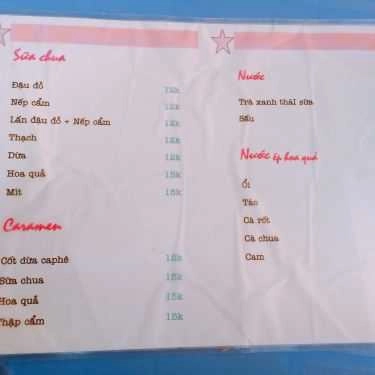 Sữa chua
Đậu đỏ 12k
Nếp cẩm 12k
Lẩn đậu đỏ + Nếp cẩm 12k
Thạch 12k
Dừa 15k
Hoa quả 15k
Mít 15k
Caramen
Cốt dừa caphê 15k
Sữa chua 15k
Hoa quả 15k
Thập cẩm 15k
Nước
Trà xanh thái sữa
Sấu
Nước ép hoa quả
Ổi
Táo
Cà rốt
Cà chua
Cam